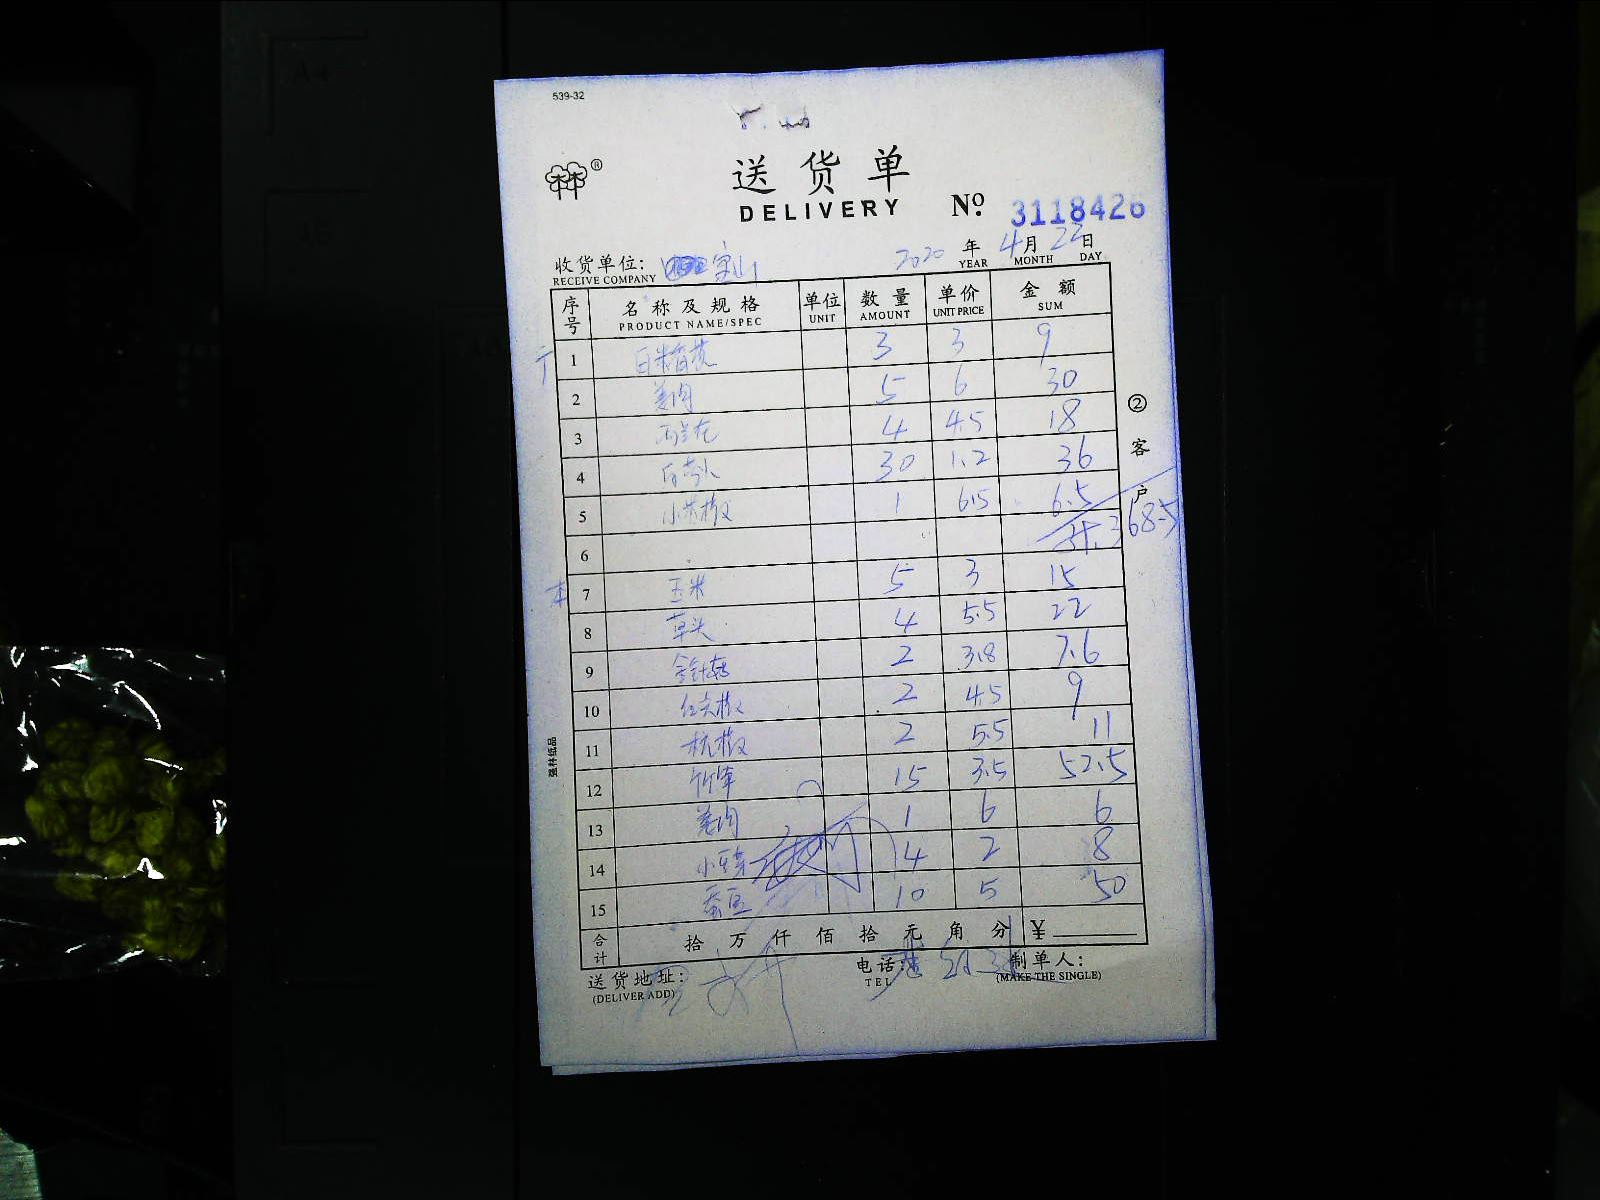 539-32
送货单
DELIVERY
№ 3118426
收货单位: 宝山 2020 年 4 月 22 日
RECEIVE COMPANY YEAR MONTH DAY
序号 名称及规格 单位 数量 单价 金额
PRODUCT NAME/SPEC UNIT AMOUNT UNIT PRICE SUM
1 3 3 9
2 姜肉 5 6 30
3 西兰花 4 4.5 18
4 30 1.2 36
5 小米椒 1 6.5 6.5
6
7 玉米 5 3 15
8 草头 4 5.5 22
9 金针菇 2 3.8 7.6
10 红尖椒 2 4.5 9
11 杭椒 2 5.5 11
12 15 3.5 52.5
13 姜肉 1 6 6
14 小豆芽 4 2 8
15 蚕豆 10 5 50
合计 拾 万 仟 佰 拾 元 角 分 ¥
送货地址: 电话: 制单人:
(DELIVER ADD) TEL (MAKE THE SINGLE)
②客户
强林纸品